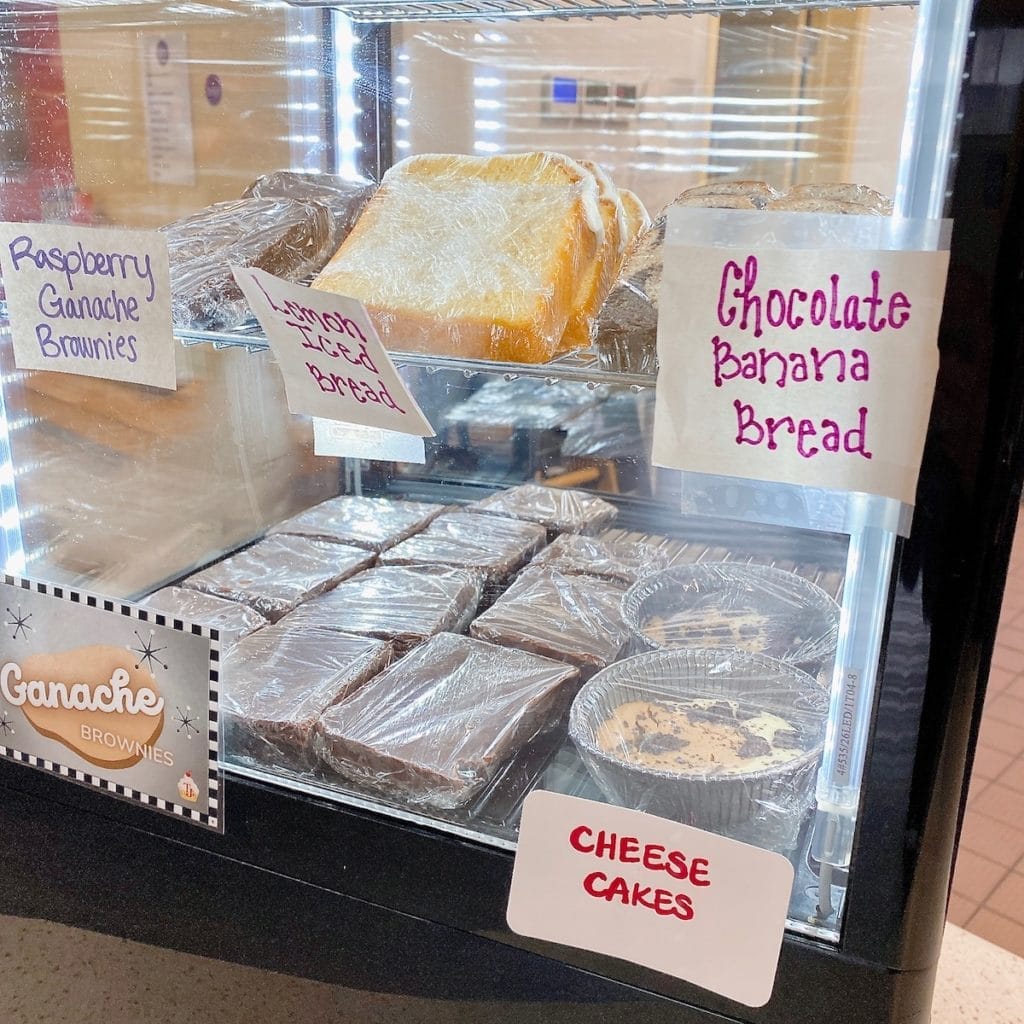 Raspberry
Ganache
Brownies
Lemon
Iced
Bread
Chocolate
Banana
Bread
Ganache
BROWNIES
CHEESE
CAKES